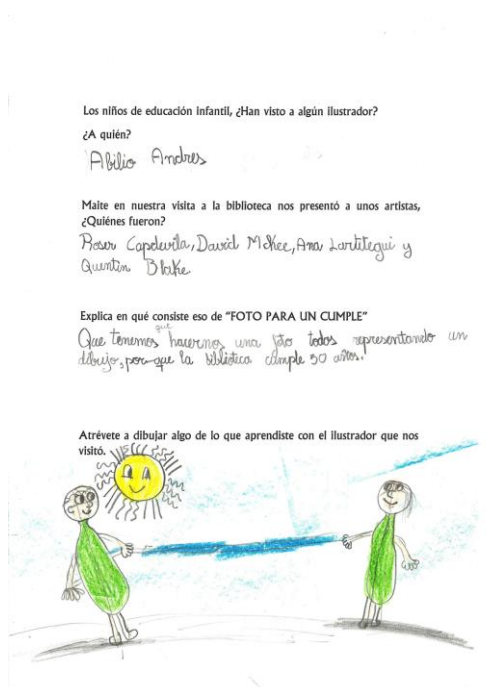 Los niños de educación infantil, ¿Han visto a algún ilustrador?
¿A quién?
Abilio Andres
Maite en nuestra visita a la biblioteca nos presentó a unos artistas,
¿Quiénes fueron?
Roser Capdevila, David Mckee, Ana Lartitegui y
Quentin Blake.
Explica en qué consiste eso de "FOTO PARA UN CUMPLE"
que
Que tenemos hacernos una foto todos representando un
dibujo, por que la biblioteca cumple 30 años.
Atrévete a dibujar algo de lo que aprendiste con el ilustrador que nos
visitó.